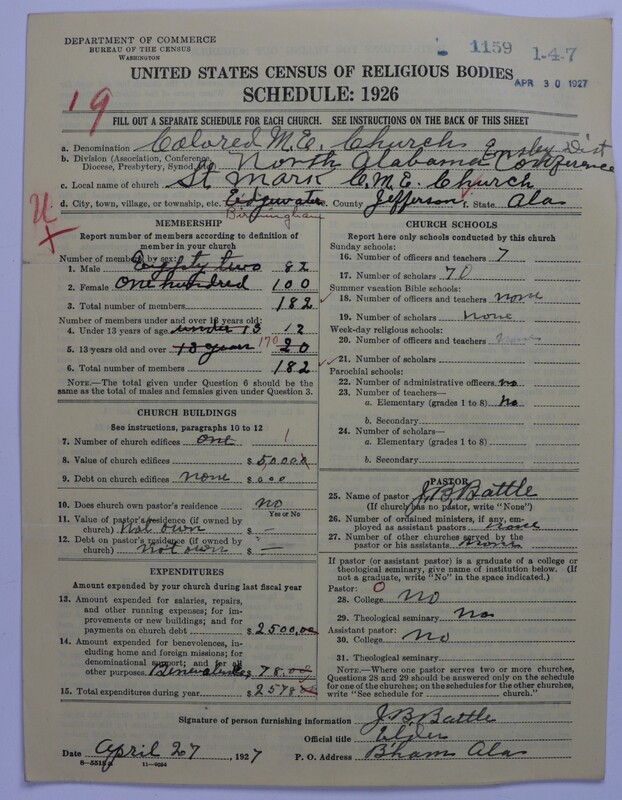 DEPARTMENT OF COMMERCE
BUREAU OF THE CENSUS
WASHINGTON
1159 1-4-7
APR 30 1927
UNITED STATES CENSUS OF RELIGIOUS BODIES
SCHEDULE: 1926
19
FILL OUT A SEPARATE SCHEDULE FOR EACH CHURCH. SEE INSTRUCTIONS ON THE BACK OF THIS SHEET
a. Denomination Colored M.E. Church Ensley Dist
b. Division (Association, Conference, Diocese, Presbytery, Synod, etc.) North Alabama Conference
c. Local name of church St Mark C.M.E. Church
d. City, town, village, or township, etc. Edgewater e. County Jefferson f. State Ala
Birmingham
U
X
MEMBERSHIP
Report number of members according to definition of
member in your church
Number of members by sex:
1. Male Eighty two 82
2. Female one hundred 100
3. Total number of members 182
Number of members under and over 13 years old:
4. Under 13 years of age under 13 12
5. 13 years old and over 13 years 170 20
6. Total number of members 182
NOTE.—The total given under Question 6 should be the
same as the total of males and females given under Question 3.
CHURCH BUILDINGS
See instructions, paragraphs 10 to 12
7. Number of church edifices one 1
8. Value of church edifices $
9. Debt on church edifices none $ 000
10. Does church own pastor's residence no
Yes or No
11. Value of pastor's residence (if owned by
church) not own $ —
12. Debt on pastor's residence (if owned by
church) not own $ —
EXPENDITURES
Amount expended by your church during last fiscal year
13. Amount expended for salaries, repairs,
and other running expenses; for im-
provements or new buildings; and for
payments on church debt $ 2500.00
14. Amount expended for benevolences, in-
cluding home and foreign missions; for
denominational support; and for all
other purposes. $ 78.00
15. Total expenditures during year $ 2578
CHURCH SCHOOLS
Report here only schools conducted by this church
Sunday schools:
16. Number of officers and teachers 7
17. Number of scholars 70
Summer vacation Bible schools:
18. Number of officers and teachers none
19. Number of scholars none
Week-day religious schools:
20. Number of officers and teachers none
21. Number of scholars
Parochial schools:
22. Number of administrative officers no
23. Number of teachers—
a. Elementary (grades 1 to 8) no
b. Secondary
24. Number of scholars—
a. Elementary (grades 1 to 8)
b. Secondary
PASTOR
25. Name of pastor J. B. Battle
(If church has no pastor, write "None")
26. Number of ordained ministers, if any, em-
ployed as assistant pastors none
27. Number of other churches served by the
pastor or his assistants none
If pastor (or assistant pastor) is a graduate of a college or
theological seminary, give name of institution below. (If
not a graduate, write "No" in the space indicated.)
Pastor: 0
28. College no
29. Theological seminary no
Assistant pastor:
30. College no
31. Theological seminary
NOTE.—Where one pastor serves two or more churches,
Questions 28 and 29 should be answered only on the schedule
for one of the churches; on the schedules for the other churches,
write "See schedule for church."
Signature of person furnishing information J. B. Battle
Official title Elder
Date April 27, 1927 P. O. Address B'ham Ala
8-5315a 11-9024